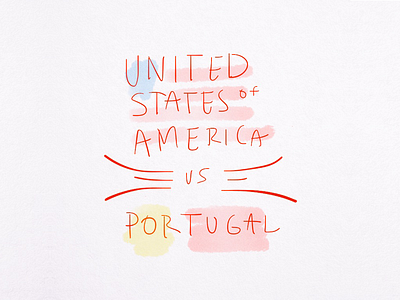 UNITED
STATES of
AMERICA
VS
PORTUGAL